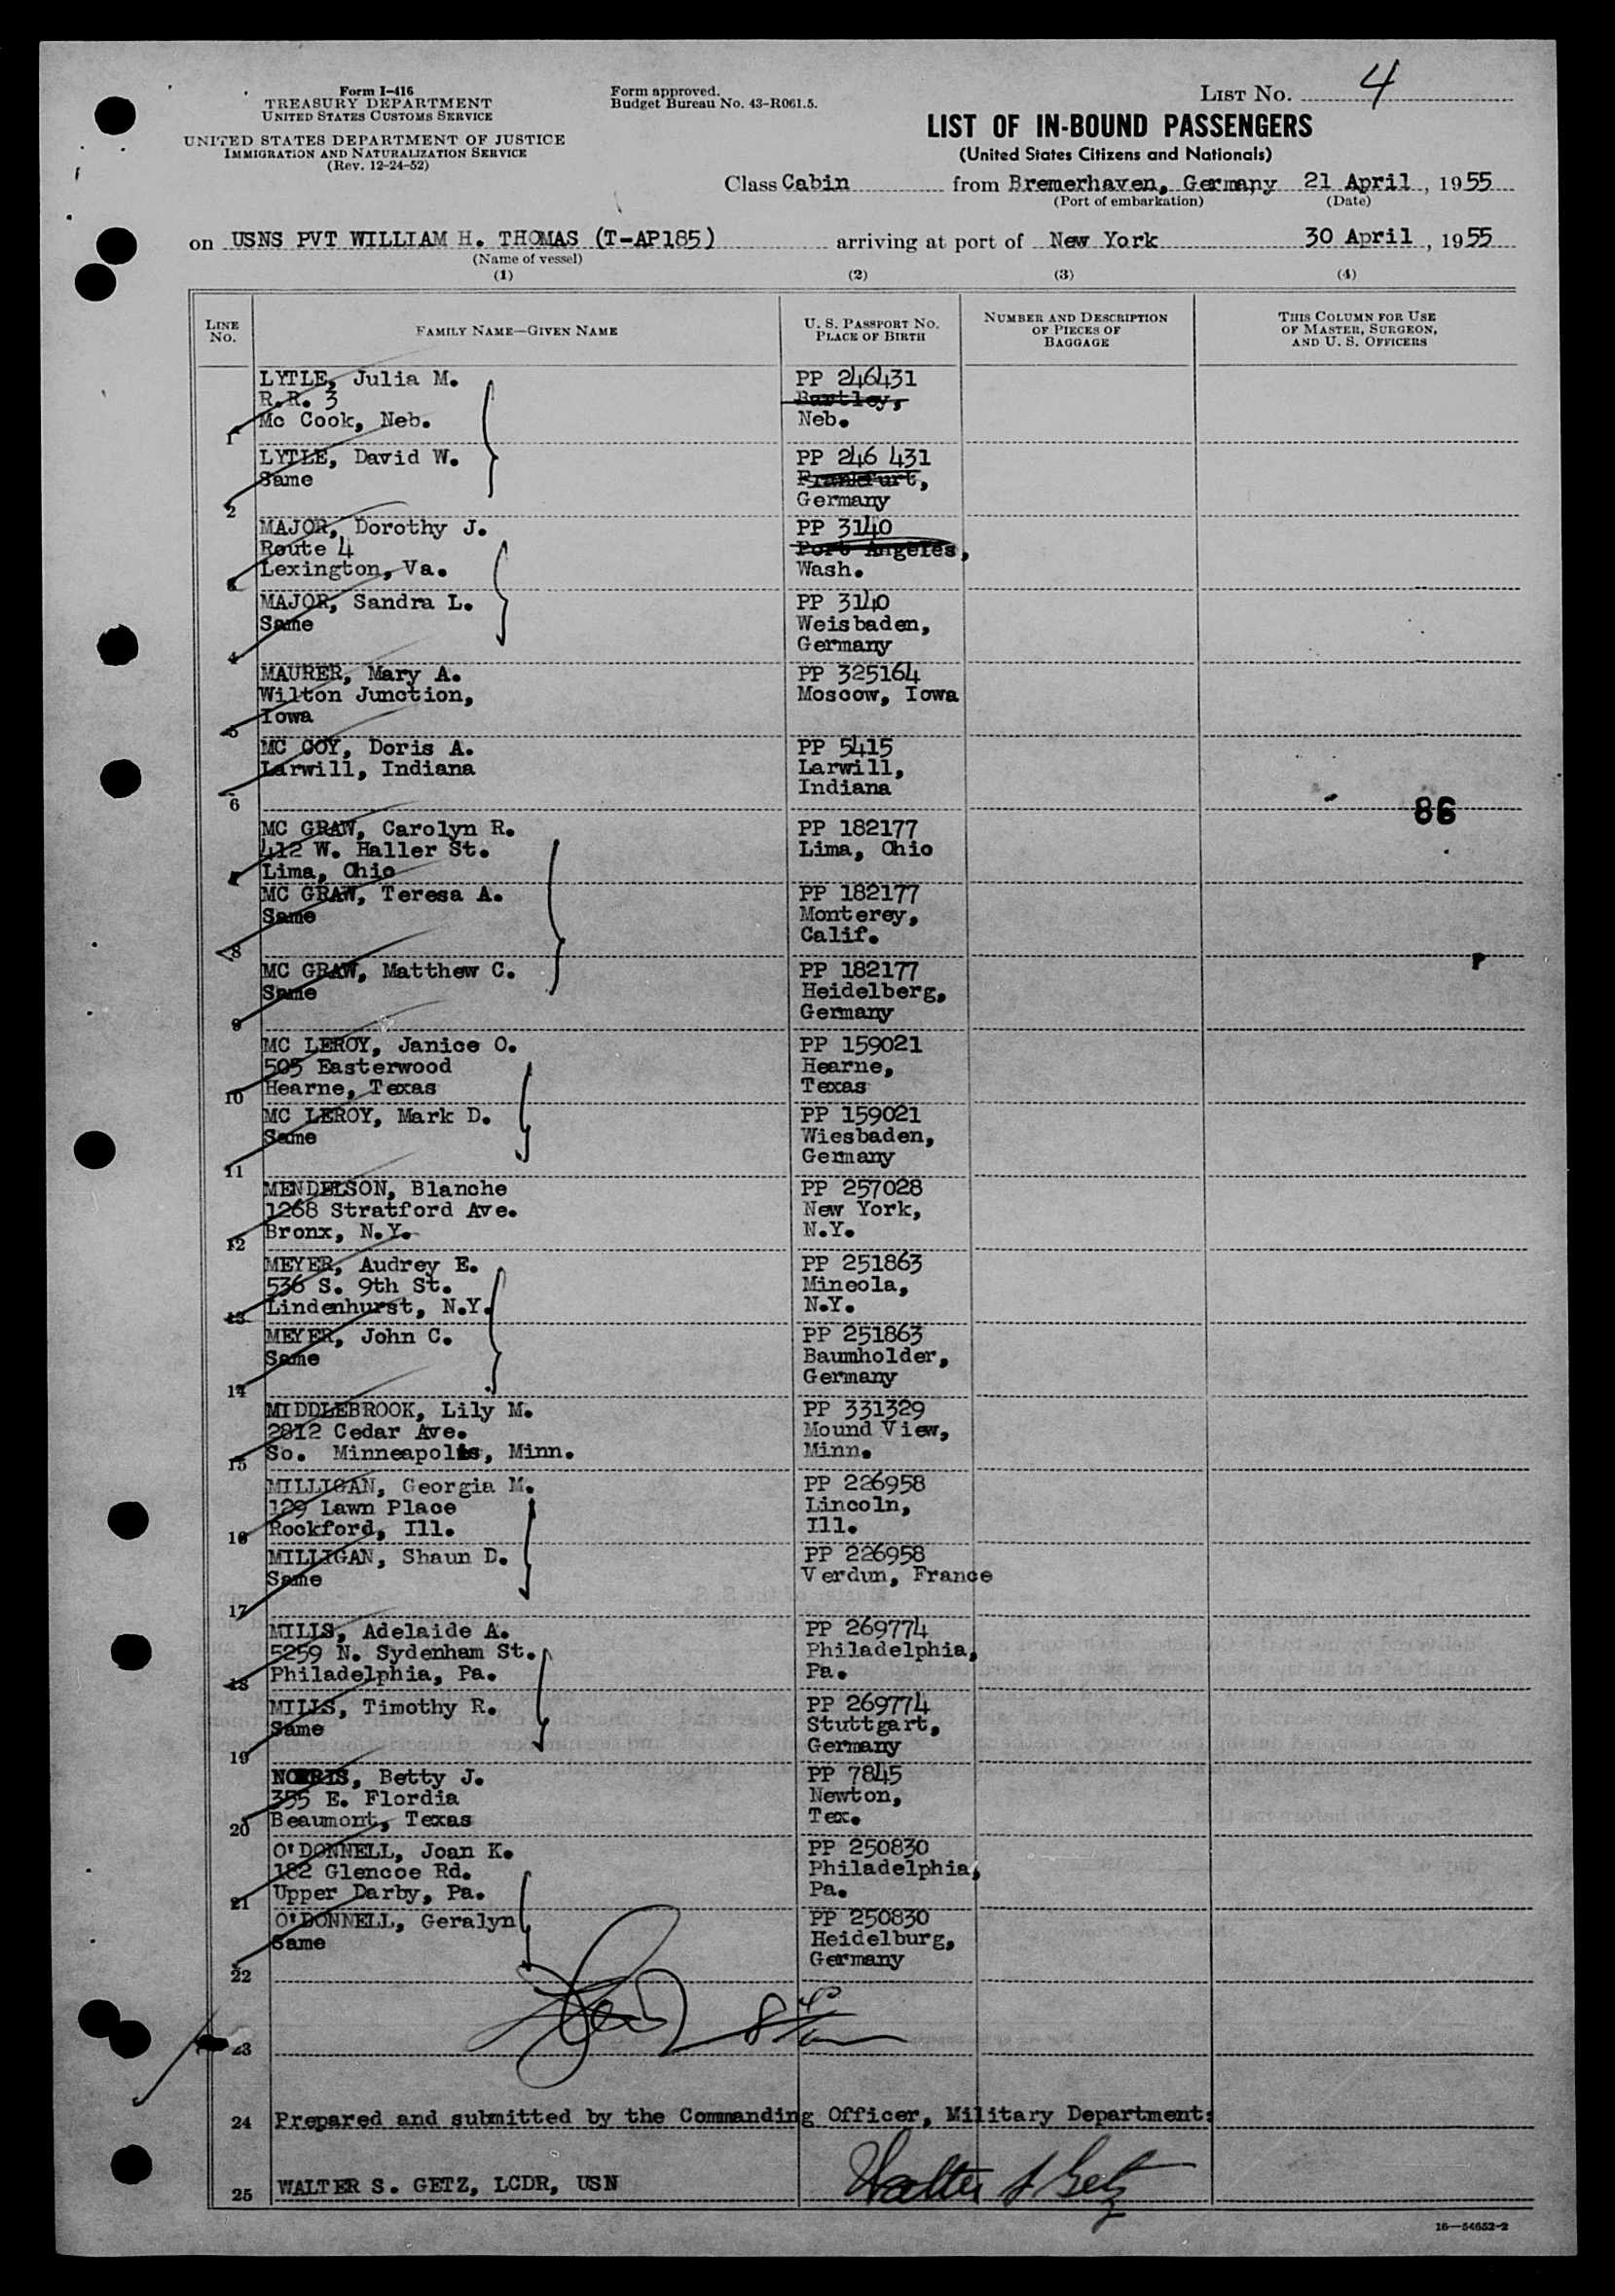 Form I-416
TREASURY DEPARTMENT
UNITED STATES CUSTOMS SERVICE
UNITED STATES DEPARTMENT OF JUSTICE
IMMIGRATION AND NATURALIZATION SERVICE
(Rev. 12-24-52)
Form approved.
Budget Bureau No. 43-R061.5.
LIST No. 4
LIST OF IN-BOUND PASSENGERS
(United States Citizens and Nationals)
Class Cabin from Bremerhaven, Germany 21 April, 1955
(Port of embarkation) (Date)
on USNS PVT WILLIAM H. THOMAS (T-AP185) arriving at port of New York 30 April, 1955
(Name of vessel)
(1) (2) (3) (4)
LINE No.
FAMILY NAME—GIVEN NAME
U. S. PASSPORT No.
PLACE OF BIRTH
NUMBER AND DESCRIPTION
OF PIECES OF
BAGGAGE
THIS COLUMN FOR USE
OF MASTER, SURGEON,
AND U. S. OFFICERS
LYTLE, Julia M. PP 246431
R.R. 3 Bartley,
1 Mc Cook, Neb. Neb.
LYTLE, David W. PP 246 431
Same Frankfurt,
2 Germany
MAJOR, Dorothy J. PP 3140
Route 4 Port Angeles,
3 Lexington, Va. Wash.
MAJOR, Sandra L. PP 3140
Same Weisbaden,
4 Germany
MAURER, Mary A. PP 325164
Wilton Junction, Moscow, Iowa
5 Iowa
MC COY, Doris A. PP 5415
Larwill, Indiana Larwill,
6 Indiana
86
MC GRAW, Carolyn R. PP 182177
412 W. Haller St. Lima, Ohio
7 Lima, Ohio
MC GRAW, Teresa A. PP 182177
Same Monterey,
8 Calif.
MC GRAW, Matthew C. PP 182177
Same Heidelberg,
9 Germany
MC LEROY, Janice O. PP 159021
505 Easterwood Hearne,
10 Hearne, Texas Texas
MC LEROY, Mark D. PP 159021
Same Wiesbaden,
11 Germany
MENDELSON, Blanche PP 257028
1268 Stratford Ave. New York,
12 Bronx, N.Y. N.Y.
MEYER, Audrey E. PP 251863
536 S. 9th St. Mineola,
13 Lindenhurst, N.Y. N.Y.
MEYER, John C. PP 251863
Same Baumholder,
14 Germany
MIDDLEBROOK, Lily M. PP 331329
2812 Cedar Ave. Mound View,
15 So. Minneapolis, Minn. Minn.
MILLIGAN, Georgia M. PP 226958
129 Lawn Place Lincoln,
16 Rockford, Ill. Ill.
MILLIGAN, Shaun D. PP 226958
Same Verdun, France
17
MILLS, Adelaide A. PP 269774
5259 N. Sydenham St. Philadelphia,
18 Philadelphia, Pa. Pa.
MILLS, Timothy R. PP 269774
Same Stuttgart,
19 Germany
NORRIS, Betty J. PP 7845
355 E. Flordia Newton,
20 Beaumont, Texas Tex.
O'DONNELL, Joan K. PP 250830
182 Glencoe Rd. Philadelphia,
21 Upper Darby, Pa. Pa.
O'DONNELL, Geralyn PP 250830
Same Heidelburg,
22 Germany
23
24 Prepared and submitted by the Commanding Officer, Military Department:
25 WALTER S. GETZ, LCDR, USN Walter S Getz
16—54652-2